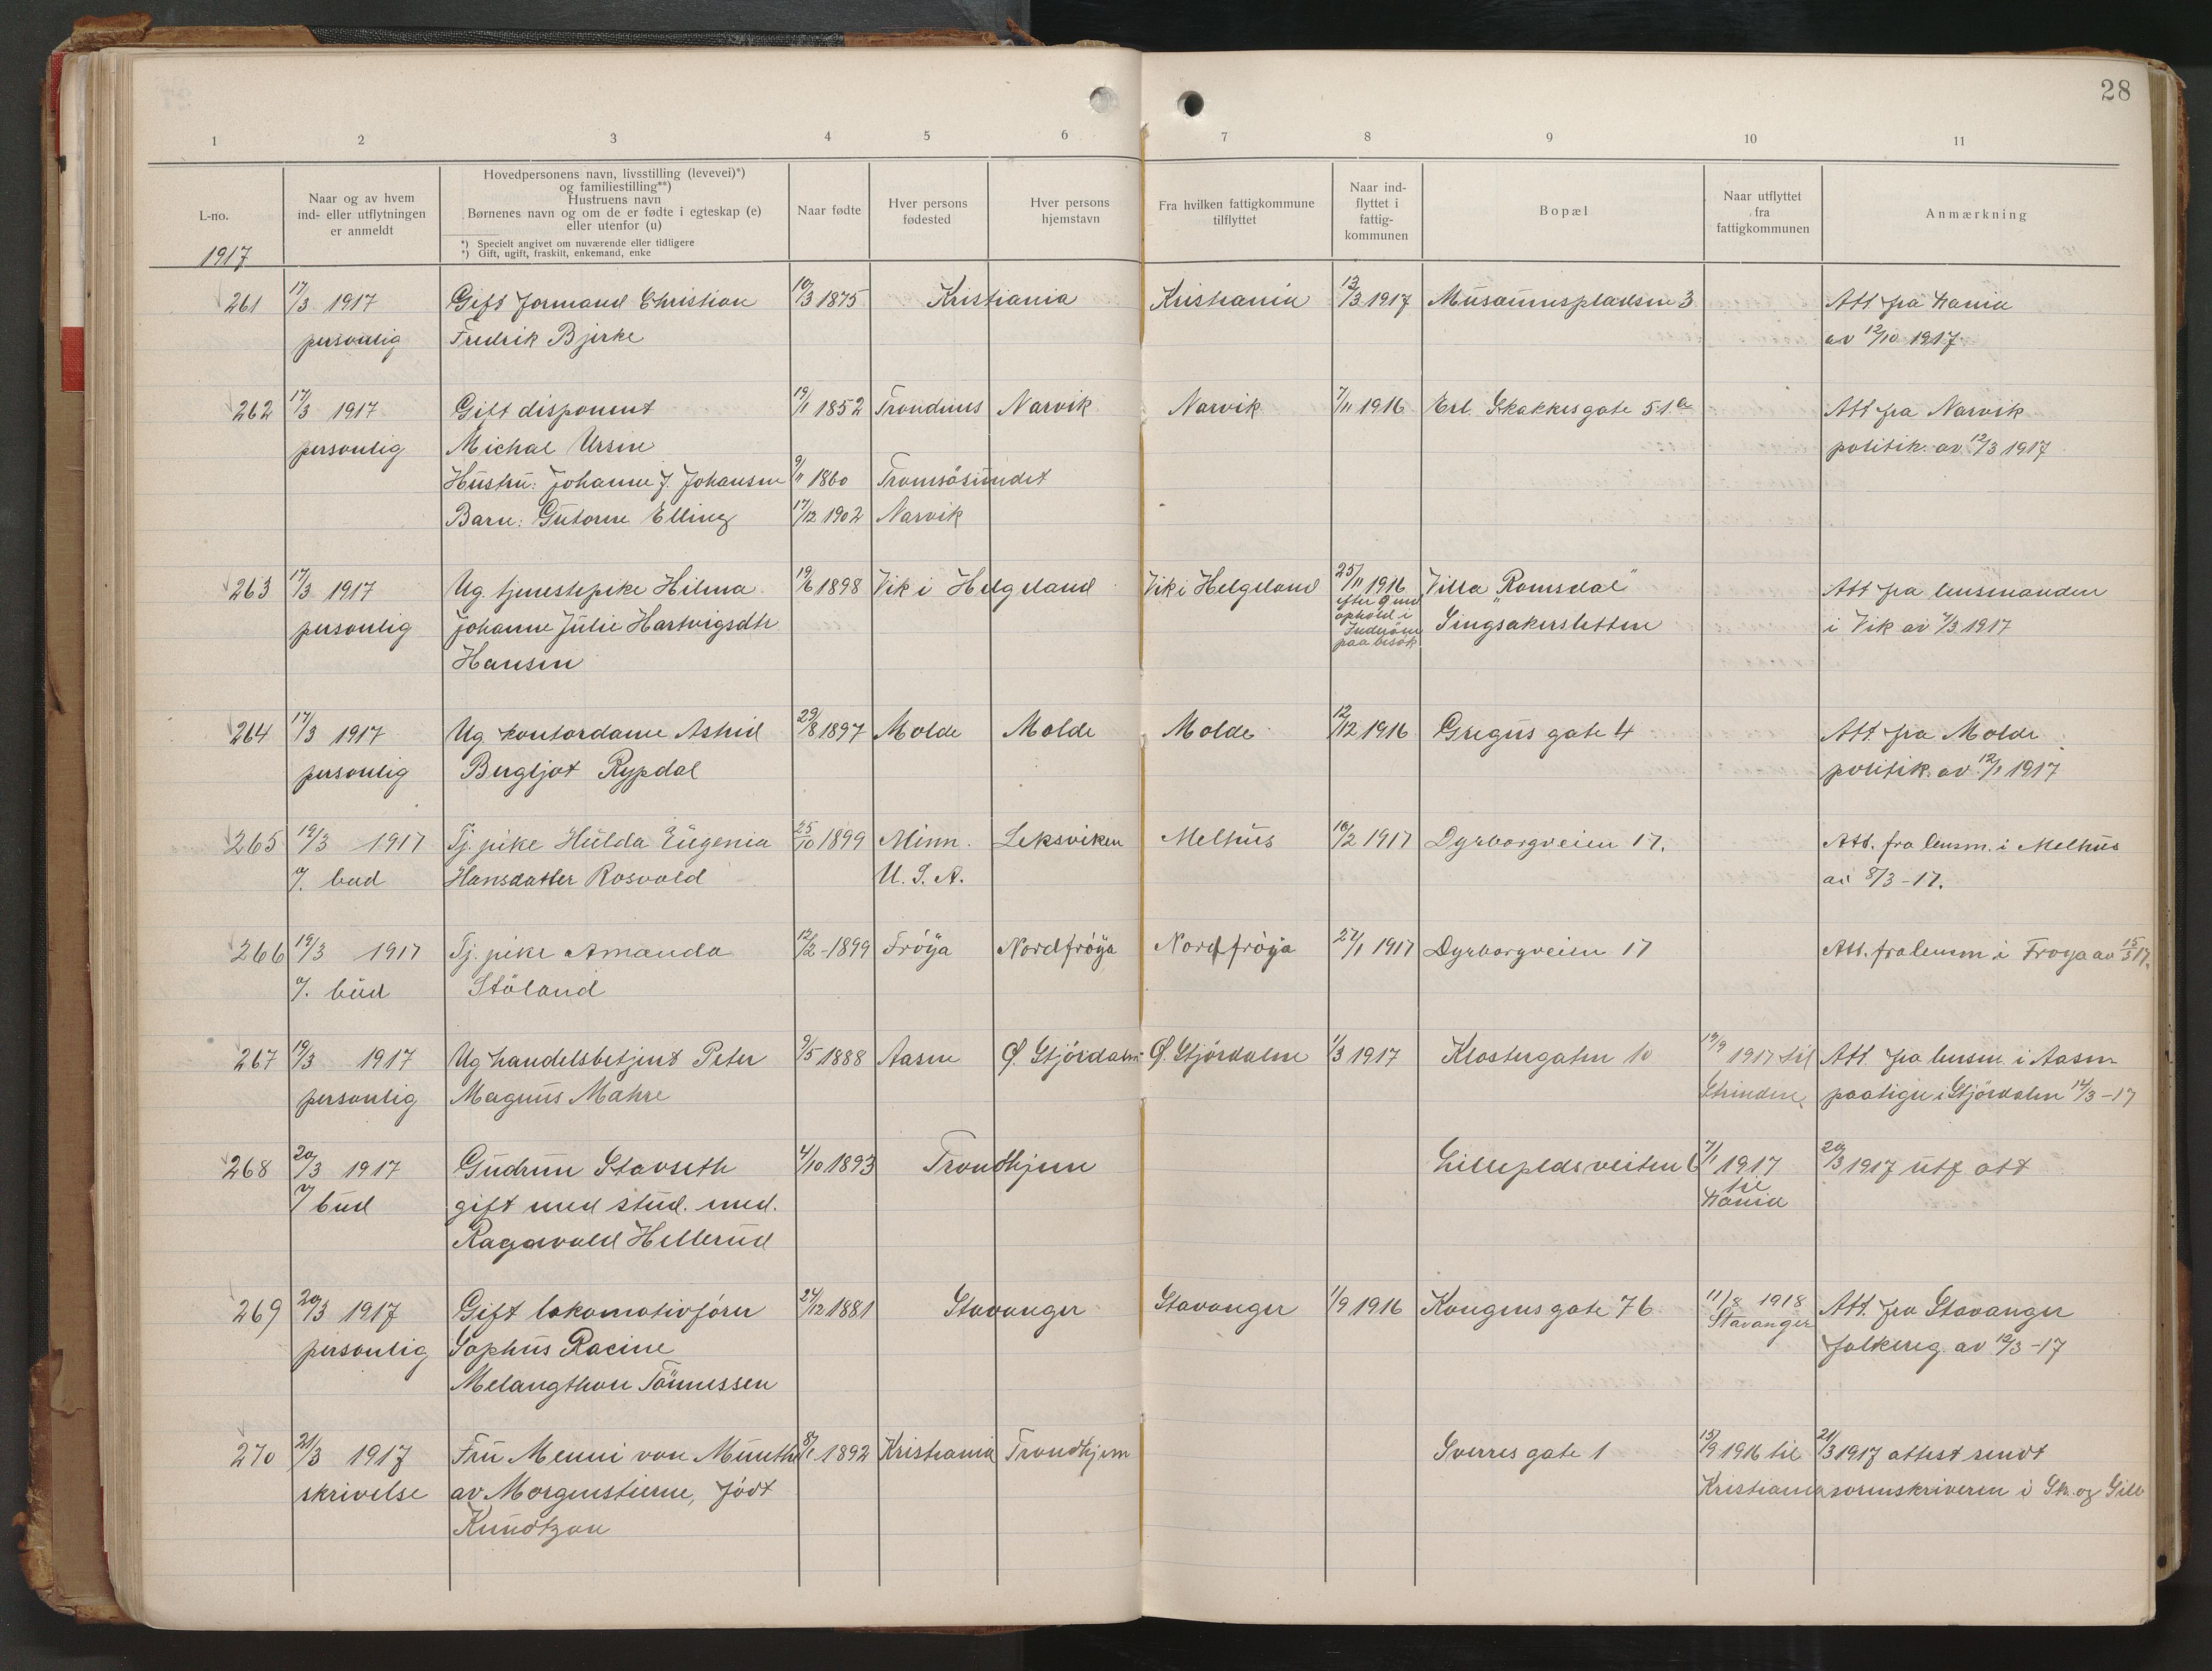 28
1 2 3 4 5 6 7 8 9 10 11
L-no.
Naar og av hvem
ind- eller utflytningen
er anmeldt
Hovedpersonens navn, livsstilling (levevei)*)
og familiestilling**)
Hustruens navn
Børnenes navn og om de er fødte i egteskap (e)
eller utenfor (u)
*) Specielt angivet om nuværende eller tidligere
*) Gift, ugift, fraskilt, enkemand, enke
Naar fødte
Hver persons
fødested
Hver persons
hjemstavn
Fra hvilken fattigkommune
tilflyttet
Naar ind-
flyttet i
fattig-
kommunen
Bopæl
Naar utflyttet
fra
fattigkommunen
Anmærkning
1917
261 17/3 1917 Gift formand Christian 10/3 1875 Kristiania Kristiania 13/3 1917 Museumspladsen 3 Att. fra Kania
personlig Fredrik Bjerke av 12/10 1917.
262 17/3 1917 Gift disponent 19/1 1852 Trondenes Narvik Narvik 7/11 1916 Erl. Skakkesgate 51a Att fra Narvik
personlig Michal Ursin politik. av 12/3 1917
Hustru: Johanne J. Johansen 9/11 1860 Tromsösundet
Barn: Gutorm Elling 17/12 1902 Narvik
263 17/3 1917 Ug. tjenestepike Hilma 19/6 1898 Vik i Helgeland Vik i Helgeland 25/11 1916 Villa "Romsdal" Att fra lensmanden
efter 9 md
personlig Johanne Julie Hartvigsdtr ophold i Singsakersletten i Vik av 7/3 1917
Inderöen
paa besök
Hansen
264 17/3 1917 Ug kontordame Astrid 29/8 1897 Molde Molde Molde 12/12 1916 Gregus gate 4 Att. fra Molde
personlig Bergljot Rypdal politik. av 12/1 1917
265 19/3 1917 Tj. pike Hulda Eugenia 25/10 1899 Minn. Leksviken Melhus 16/2 1917 Dyrborgveien 17. Att. fra lensm. i Melhus
v. bud Hansdatter Rosvold U. S. A. av 8/3-17.
266 19/3 1917 Tj. pike Amanda 12/2-1899 Fröya Nordfröya Nordfröya 27/1 1917 Dyrborgveien 17 Att. fra lensm i Froya av 15/3 17.
v. bud Stöland
267 19/3 1917 Ug handelsbetjent Peter 9/5 1888 Aasen Ø. Stjördalen Ø. Stjördalen 1/3 1917 Klostergaten 10 19/9 1917 til Att. fra lensm. i Aasen
personlig Magnus Mahre Strinden paategn i Stjördalen 14/3-17
268 20/3 1917 Gudrun Stavseth 4/10 1893 Trondhjem 7/1 1917 20/3 1917 utf att
v bud gift med stud. med. til
Kania
Ragnvald Hellerud
269 20/3 1917 Gift lokomotivförer 24/12 1881 Stavanger Stavanger 1/9 1916 Kongensgate 76 11/8 1918 Att. fra Stavanger
personlig Sophus Racine Stavanger folkereg. av 10/3-17
Melangthon Tönnessen
270 21/3 1917 Fru Menni von Munthe 1892 Kristiania Trondhjem Sverres gate 1 15/9 1916 til 21/3 1917 attest sendt
skrivelse av Morgenstierne, födt Kristiania sorenskriveren i
Knudtzon